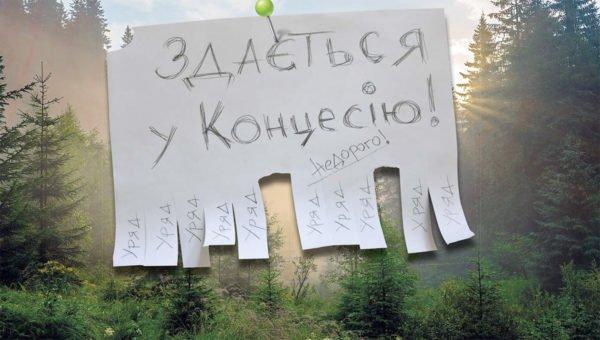 Здається
у Концесію!
Недорого!
Уряд
Уряд
Уряд
Уряд
Уряд
Уряд
Уряд
Уряд
Уряд
Уряд